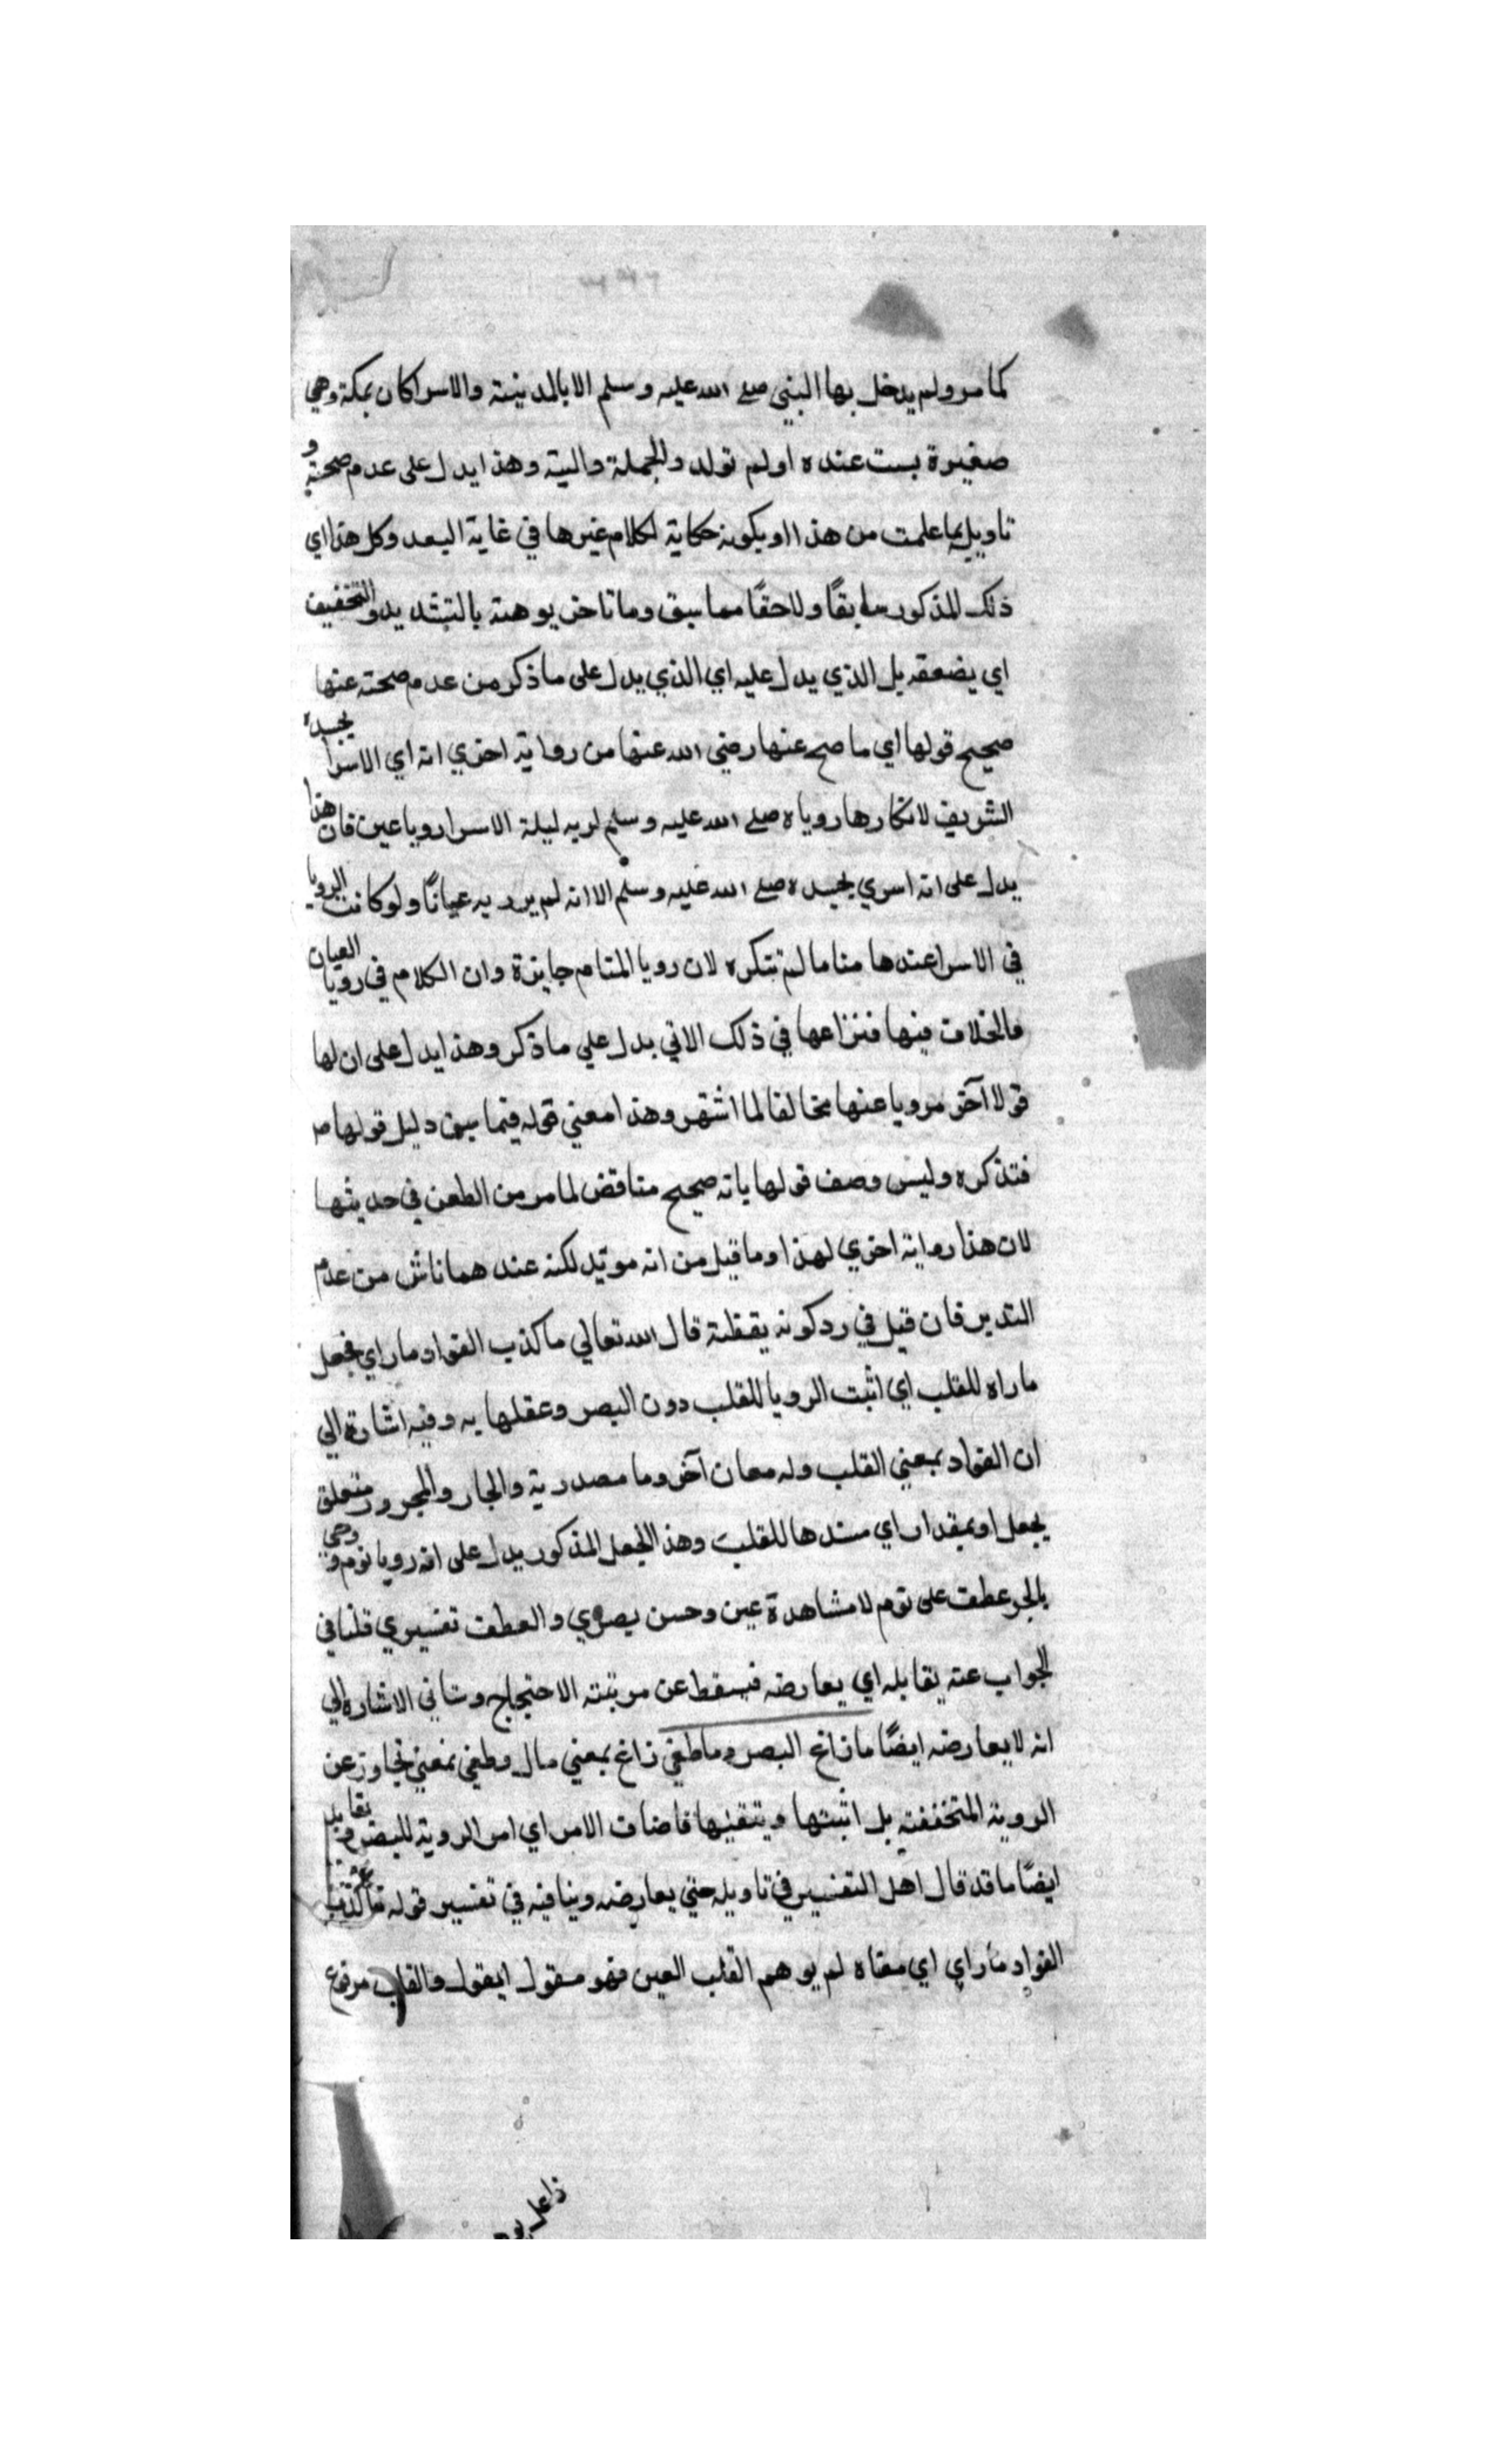 كما مر ولم يدخل بها النبي صلى الله عليه وسلم الا بالمدينة والاسرا كان بمكة وهي
صغيرة بست عنده او لم تولد والجملة حالية وهذا يدل على عدم صحته و
تاويله بما علمت من هذا او بكونه حكاية لكلام غيرها في غاية البعد وكل هذا اي
ذلك المذكور سابقًا ولاحقًا مما سبق وما تاخر يوهنه بالتشديد والتخفيف
اي يضعفه بل الذي يدل عليه اي الذي يدل على ما ذكر من عدم صحته عنها
صحيح قولها اي ما صح عنها رضي الله عنها من رواية اخري انه اي الاسرا بجسده
الشريف لانكارها روياه صلى الله عليه وسلم لربه ليلة الاسرا رويا عين فان هذا
يدل على انه اسري بجسده صلى الله عليه وسلم الا انه لم ير ربه عيانًا ولو كانت الرويا
في الاسرا عندها مناما لم تنكره لان رويا المنام جايزة وان الكلام في رويا العيان
والخلاف فيها فنزاعها في ذلك الاتي يدل علي ما ذكر وهذا يدل على ان لها
قولا آخر مرويا عنها مخالفا لما اشتهر وهذا معني قوله فيما سبق دليل قولها
فتذكره وليس وصف قولها بانه صحيح مناقض لما مر من الطعن في حديثها
لان هذا رواية اخري لهذا وما قيل من انه مويد لكنه عندهما ناش من عدم
التدبر فان قيل في رد كونه يقظة قال الله تعالي ما كذب الفواد ما راي فجعل
ما راه للقلب اي اثبت الرويا للقلب دون البصر وعقلها به وفيه اشارة الي
ان الفواد بمعني القلب وله معان آخر وما مصدرية والجار والمجرور متعلق
بجعل او بمقدار اي مسندها للقلب وهذا الجعل المذكور يدل على انه رويا نوم و وحي
بالجر عطف على نوم لا مشاهدة عين وحس بصري والعطف تفسيري قلنا في
الجواب عنه يقابله اي يعارضه فيسقط عن مرتبته الاحتجاج وستاتي الاشارة الي
انه لا يعارضه ايضًا ما زاغ البصر وما طغي زاغ بمعني مال وطغي بمعني تجاوز عن
الروية المتحققة بل اثبتها وتيقنها فاضاف الامر اي امر الروية للبصر و يقابله
ايضًا ما قد قال اهل التفسير في تاويله حتي يعارضه وينافيه في تفسير قوله ما كذب
الفواد ما راي اي معناه لم يوهم القلب العين فهو مفعول والقلب مرفوع